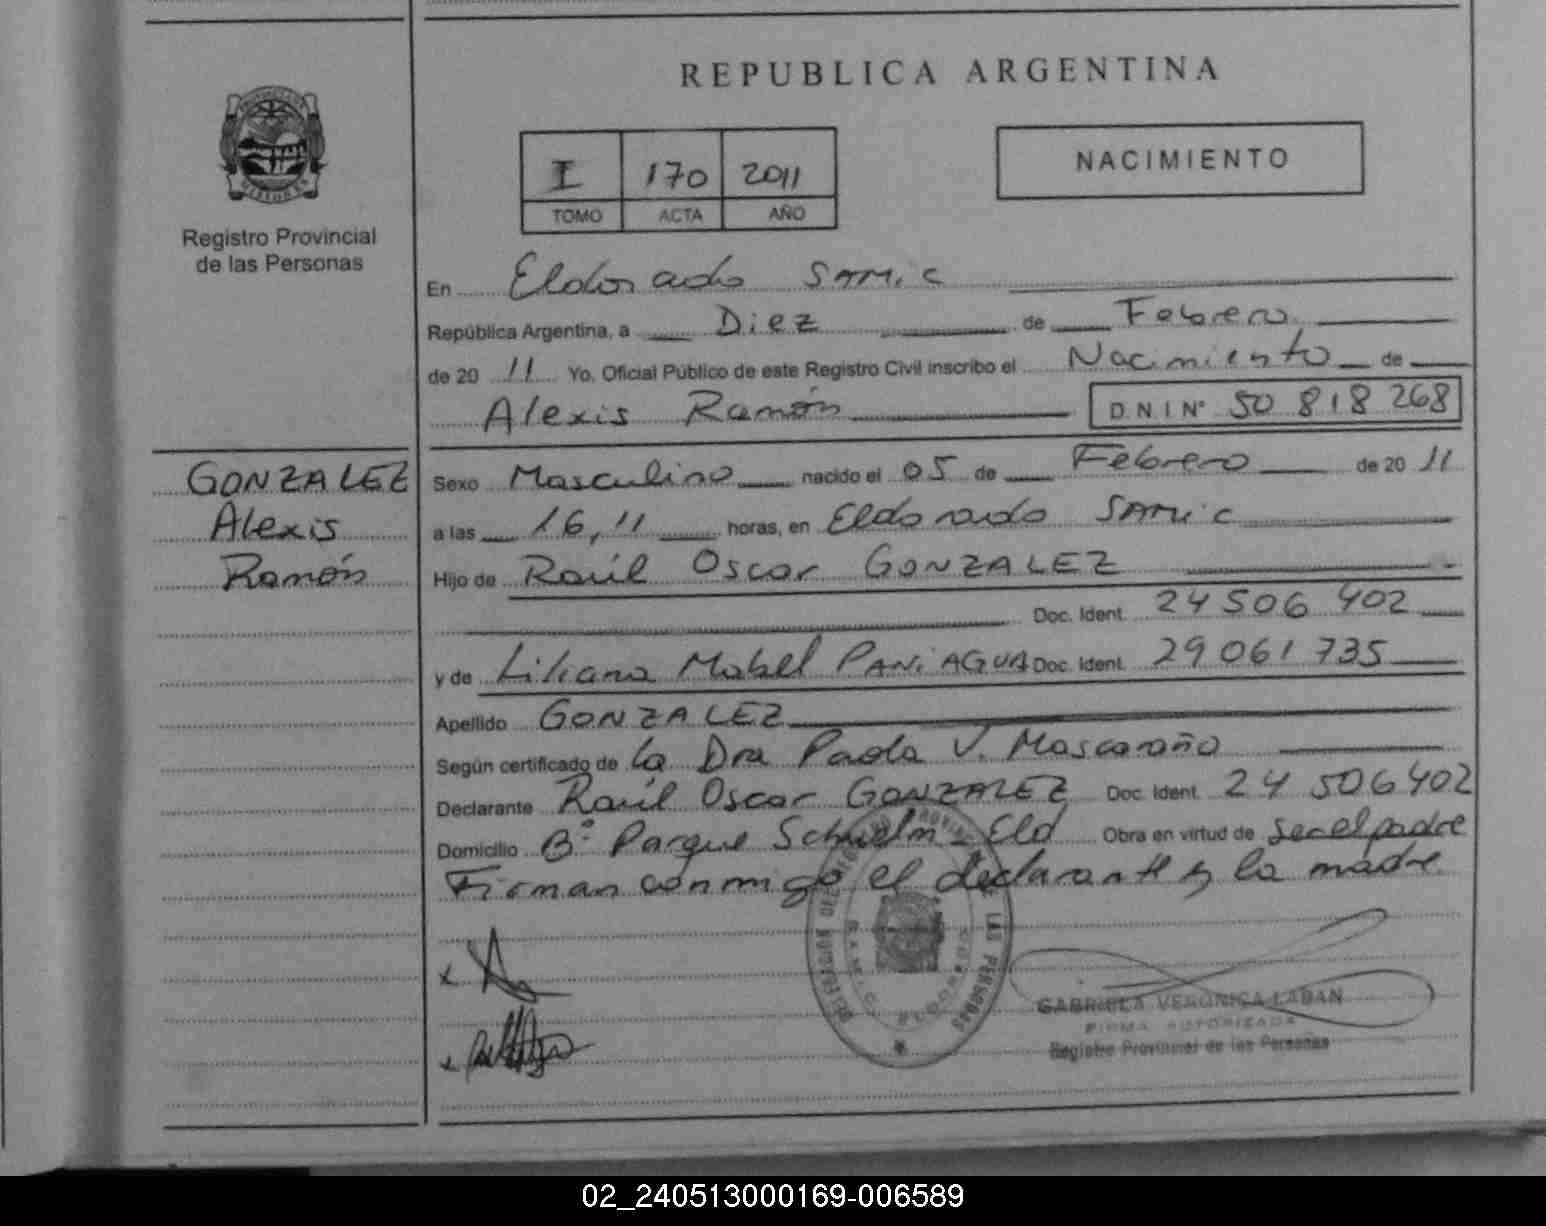 REPUBLICA ARGENTINA
I 170 2011
TOMO ACTA AÑO
NACIMIENTO
Registro Provincial
de las Personas
En Eldorado SAMIC
República Argentina, a Diez de Febrero
de 20 11 Yo, Oficial Público de este Registro Civil inscribo el Nacimiento de
Alexis Ramón D.N.I Nº 50 818 268
GONZALEZ
Alexis
Ramón
Sexo Masculino nacido el 05 de Febrero de 20 11
a las 16,11 horas, en Eldorado SAMIC
Hijo de Raúl Oscar GONZALEZ
Doc. Ident. 24 506 402
y de Liliana Mabel PANIAGUA Doc. Ident. 29 061 735
Apellido GONZALEZ
Según certificado de la Dra Paola V. Mascaraño
Declarante Raúl Oscar GONZALEZ Doc. Ident. 24 506 402
Domicilio Bº Parque Schwelm Eld Obra en virtud de ser el padre
Firman conmigo el declarante y la madre.
GABRIELA VERONICA LABAN
FIRMA AUTORIZADA
Registro Provincial de las Personas
02_240513000169-006589